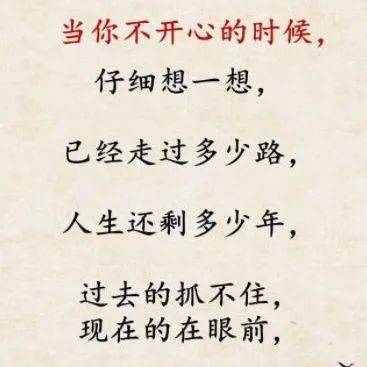 当你不开心的时候，
仔细想一想，
已经走过多少路，
人生还剩多少年，
过去的抓不住，
现在的在眼前，